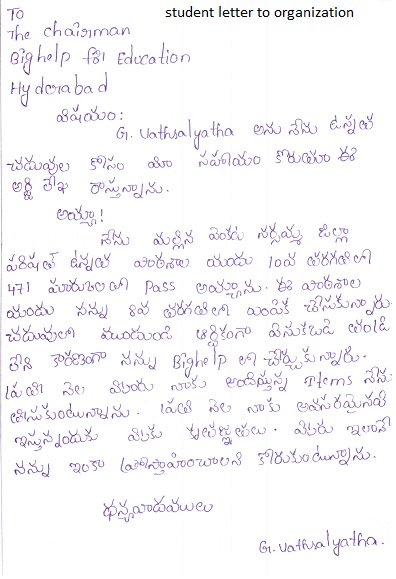 student letter to organization
To
The chairman
Bighelp for Education
Hyderabad
విషయం:
G. Vathsalyatha అను నేను ఉన్నత
చదువుల కోసం మీ సహాయం కోరుతూ ఈ
అర్జీ లేఖ రాస్తున్నాను.
అయ్యా!
నేను మల్లిన వెంకట నర్సయ్య జిల్లా
పరిషత్ ఉన్నత పాఠశాల యందు 10వ తరగతిలో
471 మార్కులతో Pass అయ్యాను. ఈ పాఠశాల
యందు నన్ను 8వ తరగతిలో ఎంపిక చేసుకున్నారు.
చదువులో ముందుండి ఆర్థికంగా వెనుకబడి తండ్రి
లేని కారణంగా నన్ను Bighelp లో చేర్చుకున్నారు.
ప్రతి నెల వారు నాకు అందిస్తున్న Items నేను
తీసుకుంటున్నాను. ప్రతి నెల నాకు అవసరమైనవి
ఇస్తున్నందుకు మీకు కృతజ్ఞతలు. మీరు ఇలానే
నన్ను ఇంకా ప్రోత్సాహించాలని కోరుకుంటున్నాను.
ధన్యవాదములు
G. Vathsalyatha.